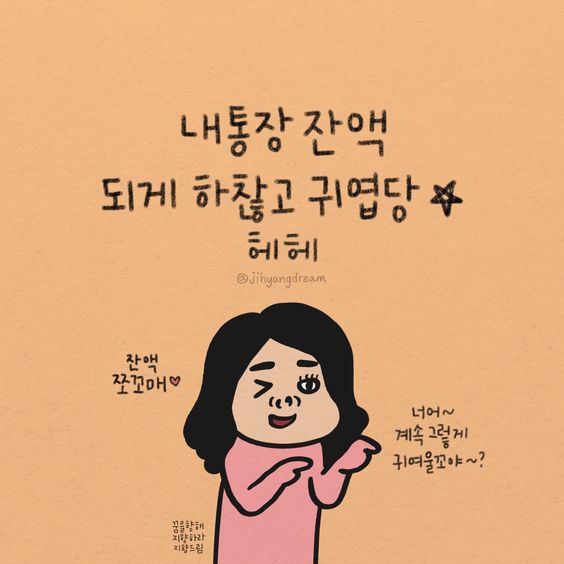 내통장 잔액
되게 하찮고 귀엽당
헤헤
@jihyangdream
잔액
쪼꼬매
너어~
계속 그렇게
귀여울꼬야~?
꿈을향해
지향하라
지향드림